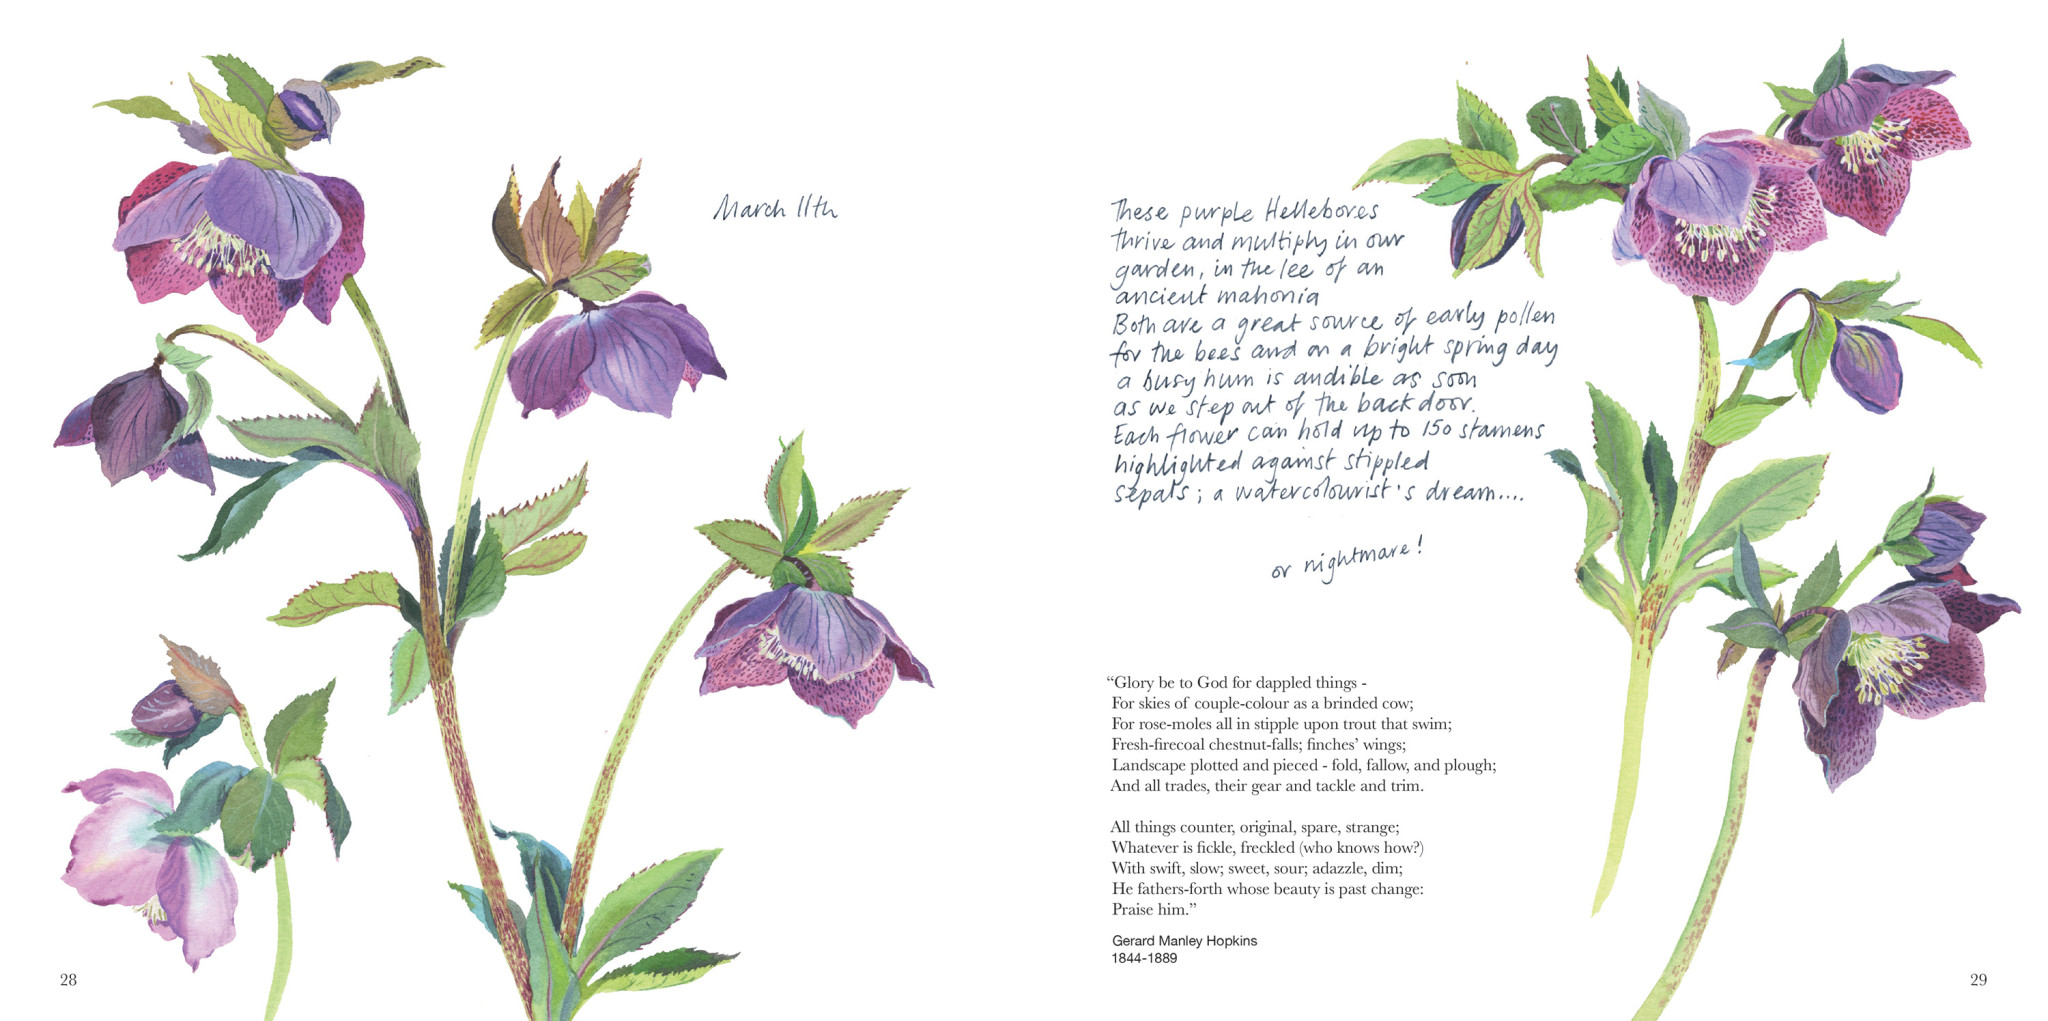 March 11th
These purple Hellebores
thrive and multiply in our
garden, in the lee of an
ancient mahonia
Both are a great source of early pollen
for the bees and on a bright spring day
a busy hum is audible as soon
as we step out of the back door.
Each flower can hold up to 150 stamens
highlighted against stippled
sepals; a watercolourist's dream....
or nightmare!
“Glory be to God for dappled things -
For skies of couple-colour as a brinded cow;
For rose-moles all in stipple upon trout that swim;
Fresh-firecoal chestnut-falls; finches’ wings;
Landscape plotted and pieced - fold, fallow, and plough;
And all trades, their gear and tackle and trim.
All things counter, original, spare, strange;
Whatever is fickle, freckled (who knows how?)
With swift, slow; sweet, sour; adazzle, dim;
He fathers-forth whose beauty is past change:
Praise him.”
Gerard Manley Hopkins
1844-1889
28
29